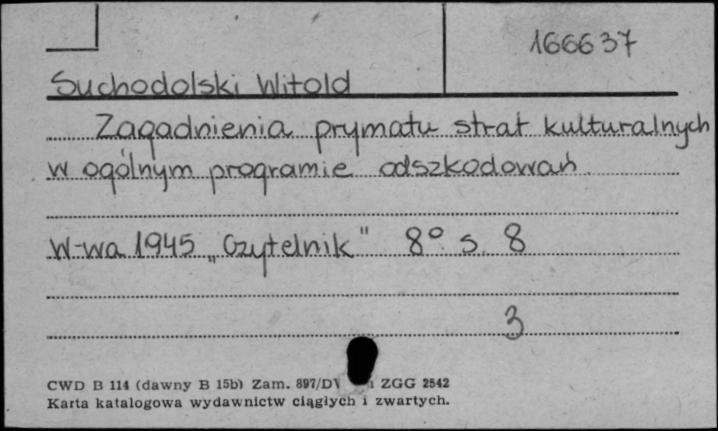 166637
Suchodolski Witold
Zagadnienia prymatu strat kulturalnych
w ogólnym programie odszkodowań.
W-wa 1945 „Czytelnik" 8° s. 8
3
CWD B 114 (dawny B 15b) Zam. 897/D ZGG 2542
Karta katalogowa wydawnictw ciągłych i zwartych.